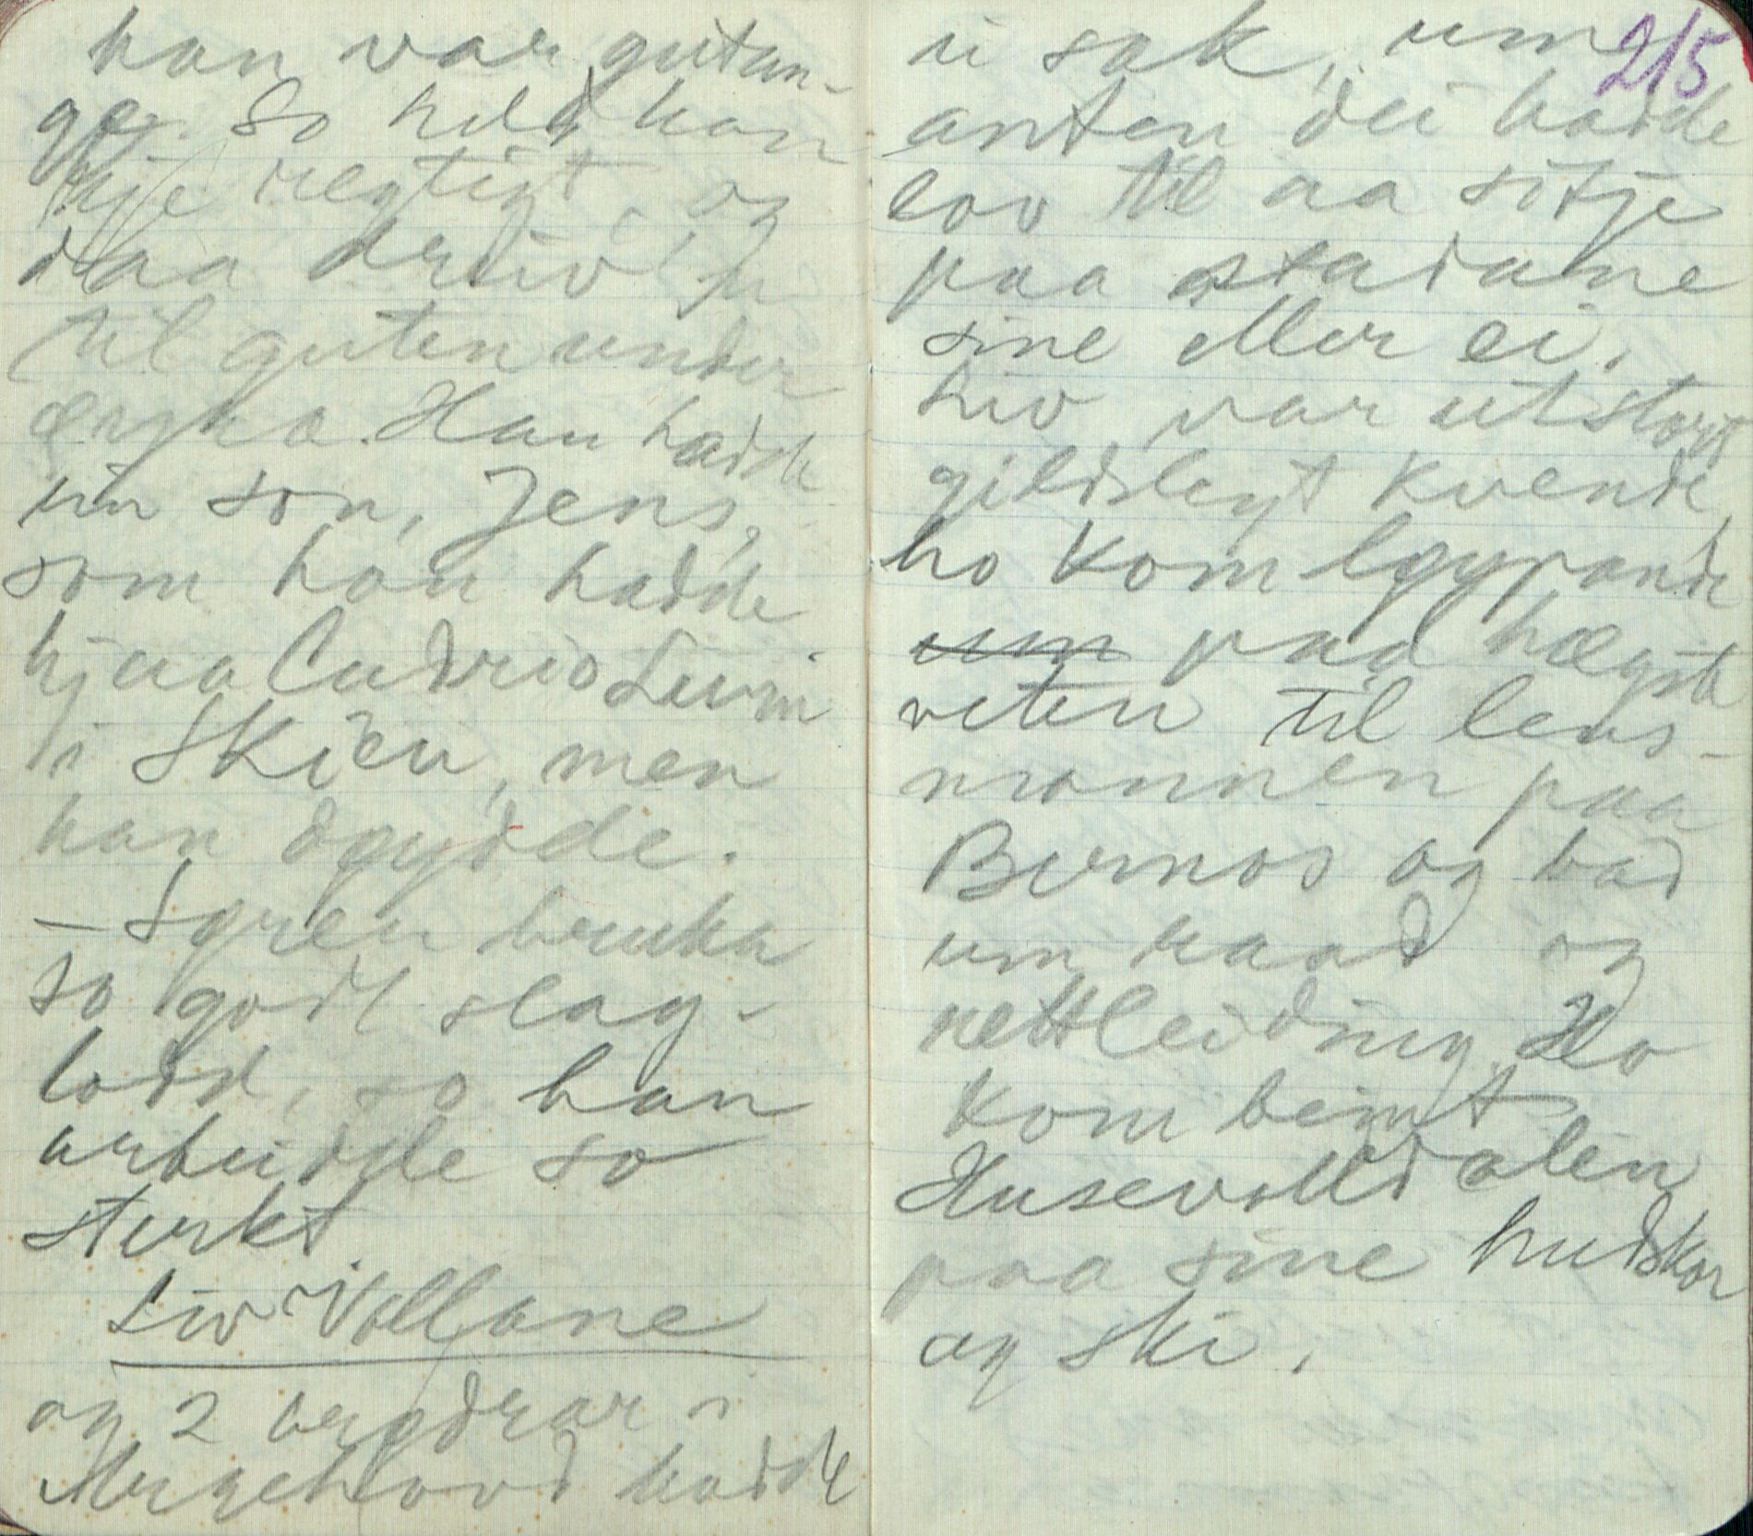 han var gutun-
ge. So heldt han
ikje regtigt, og
daa dreiv
til guten under
øryra. Han hadde
ein son, Jens,
som han hadde
hjaa Ludvio Levin
i Skien, men
han døydde.
– Søren bruka
so godt slag-
lodd, so han
arbeidde so
sterkt.
Liv Vollane
og 2 brødrar i
hadde
ei sak, um
215
anten dei hadde
lov til aa sitje
paa stadane
sine eller ei.
Liv var eit stort
gildslegt kvende,
ho kom løypande
um paa høgste
veten til lens-
mannen paa
Bernos og bad
um raad og
rettleiding. Ho
kom beint
Husevolldalen
paa sine hudskor
og ski.